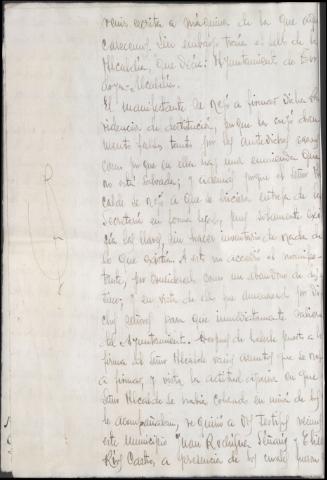 venir escrita a máquina de la que aquí
carecemos. Sin embargo traía el sello de la
Alcaldía, que decía: Ayuntamiento de
Alcaldía.
El manifestante se negó a firmar dicha
videncia de destitución, porque la creyó
mente falsa tanto por los antedichos
como porque en ella hay una enmienda que
no está salvada; y además porque el Señor
calde se negó a que se hiciera entrega de la
Secretaría en forma legal, pues solamente
las llaves, sin hacer inventario de nada de
lo que existía. A esto no accedió el manifes-
tante, por considerarlo como un abandono de des
tino; y en vista de ello que amenazado por di
chos señores para que inmediatamente saliera
del Ayuntamiento. Después de haberle puesto a la
firma el Señor Alcalde varios asuntos que se negó
a firmar, y vista la actitud que el
Señor Alcalde se había colocado en unión de los
que le acompañaban, se quiso a dos testigos vecinos
este municipio Juan Rodríguez y
Castro, a presencia de los cuales fueron